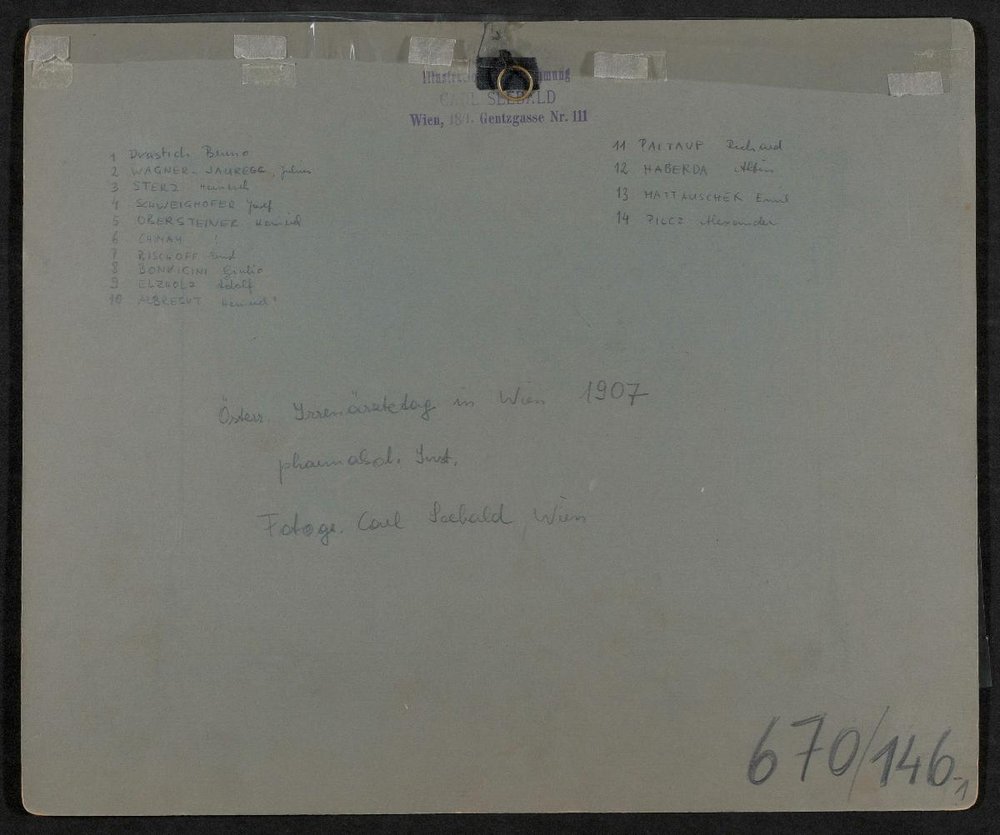 CARL SEEBALD
Wien, Gentzgasse Nr. 111
1 Drastich Bruno
2 WAGNER-JAUREGG, Julius
3 STERZ Heinrich
4 SCHWEIGHOFER Josef
5 OBERSTEINER Heinrich
6
7 BISCHOFF Ernst
8 BONVICINI Giulio
9 ELZHOLZ Adolf
10 ALBRECHT Heinrich
11 PALTAUF Richard
12 HABERDA Albin
13 MATTAUSCHEK Emil
14 PILCZ Alexander
Österr. Irrenärztetag in Wien 1907
pharmakol. Inst.
Fotogr. Carl Seebald, Wien
670/146-1